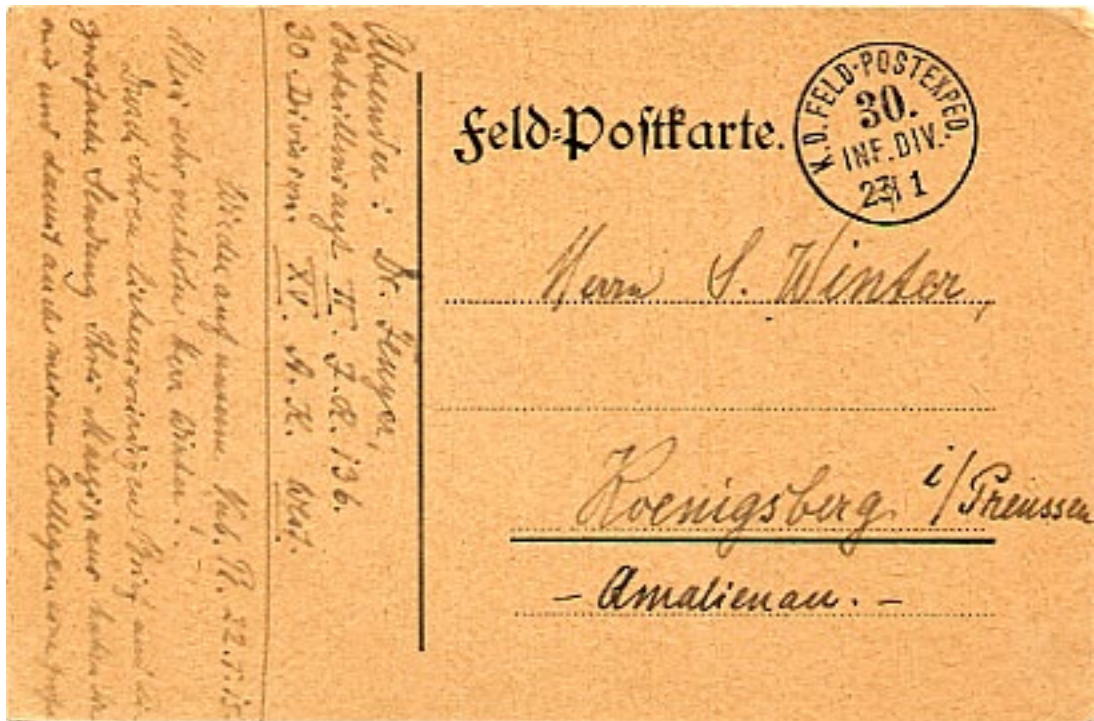 Feld-Postkarte.
K.D. FELD-POSTEXPED.
30.
INF. DIV.
23 1
Herrn S. Winter,
Koenigsberg i/Preussen
- Amalienau. -
Absender: Dr.
Bataillonsarzt II. I. R. 136.
30 Division. XV. A. K. West.
22.1.15.
Mein sehr verehrter Herr Winter!
Durch Ihren liebenswürdigen Brief und die
Sendung Ihres haben Sie
mir und damit auch meinen Collegen eine